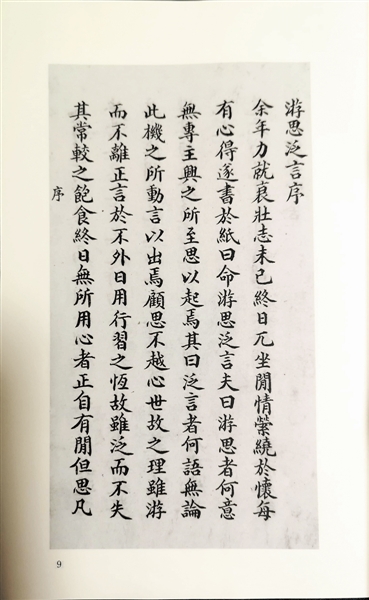 游思泛言序
余年力就衰壯志未已終日兀坐閒情縈繞於懷每
有心得遂書於紙曰命游思泛言夫曰游思者何意
無專主興之所至思以起焉其曰泛言者何語無論
此機之所動言以出焉顧思不越心世故之理雖游
而不離正言於不外日用行習之恆故雖泛而不失
其常較之飽食終日無所用心者正自有閒但思凡
序
9